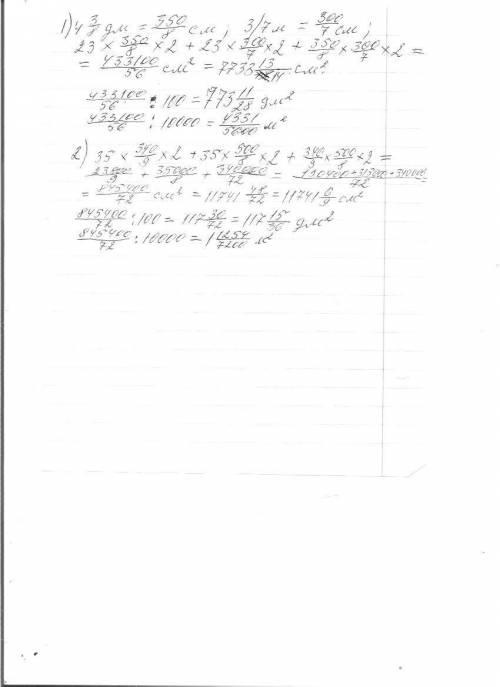 1) 4 3/8 дм = 350/8 см; 3/7 м = 300/7 см;
23 × 350/8 × 2 + 23 × 300/7 × 2 + 350/8 × 300/7 × 2 =
= 433100/56 см² = 7733 13/14 см².
433100/56 : 100 = 77 11/28 дм²
433100/56 : 10000 = 4331/5600 м²
2) 35 × 340/9 × 2 + 35 × 500/8 × 2 + 340/9 × 500/8 × 2 =
23800/9 + 35000/8 + 340000/72 = 190400+315000+340000/72 =
= 845400/72 см² = 11741 48/72 = 11741 6/9 см²
845400/72 : 100 = 117 30/72 = 117 15/36 дм²
845400/72 : 10000 = 1 1254/7200 м²